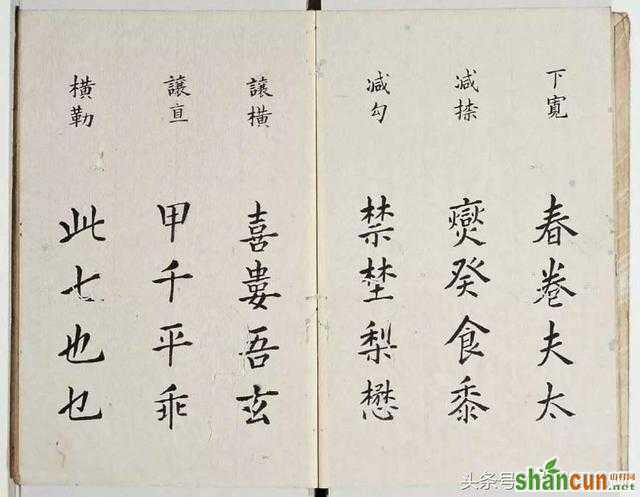 下寬
春卷夫太
减捺
燮癸食黍
减勾
禁埜梨懋
讓橫
喜婁吾玄
讓直
甲千平乖
橫勒
此七也乜
头条号
shancun
.net